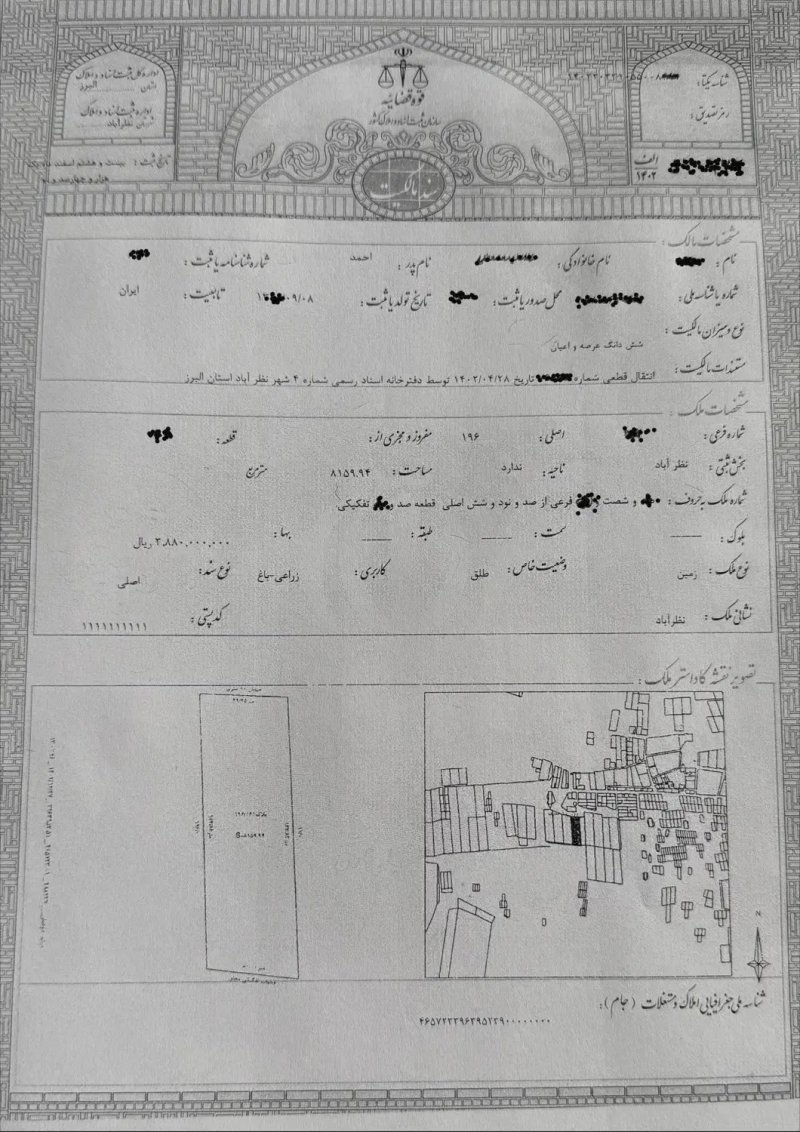 اداره کل ثبت اسناد و املاک
استان البرز
اداره ثبت اسناد و املاک
شهرستان نظرآباد
قوه قضائیه
سازمان ثبت اسناد و املاک کشور
شناسه یکتا:
رمز تصدیق:
الف
۱۴۰۲
تاریخ ثبت: بیست و هفتم اسفند ماه یک
هزار و چهارصد و دو
سند مالکیت
مشخصات مالک:
نام: نام خانوادگی: نام پدر: احمد شماره شناسنامه یا ثبت:
شماره یا شناسه ملی: محل صدور یا ثبت: تاریخ تولد یا ثبت: ۰۹/۰۸ تابعیت: ایران
نوع و میزان مالکیت:
شش دانگ عرصه و اعیان
مستندات مالکیت:
انتقال قطعی شماره تاریخ ۱۴۰۲/۰۴/۲۸ توسط دفترخانه اسناد رسمی شماره ۴ شهر نظر آباد استان البرز
مشخصات ملک:
شماره فرعی: اصلی: ۱۹۶ مفروز و مجزی از: قطعه:
بخش ثبتی: نظر آباد ناحیه: ندارد مساحت: ۸۱۵۹.۹۴ مترمربع
شماره ملک به حروف: و شصت فرعی از صد و نود و شش اصلی قطعه صد و تفکیکی
بلوک: ــــــ سمت: ــــــ طبقه: ــــــ بها: ۳,۸۸۰,۰۰۰,۰۰۰ ریال
نوع ملک: زمین وضعیت خاص: طلق کاربری: زراعی-باغ نوع سند: اصلی
نشانی ملک: نظرآباد کد پستی: ۱۱۱۱۱۱۱۱۱۱
تصویر نقشه کاداستر ملک:
N
S=۸۱۵۹.۹۴
شناسه ملی جغرافیایی املاک و مستغلات (جام):
۴۶۵۷۲۲۳۹۶۳۹۵۲۳۹۰۰۰۰۰۰۰۰